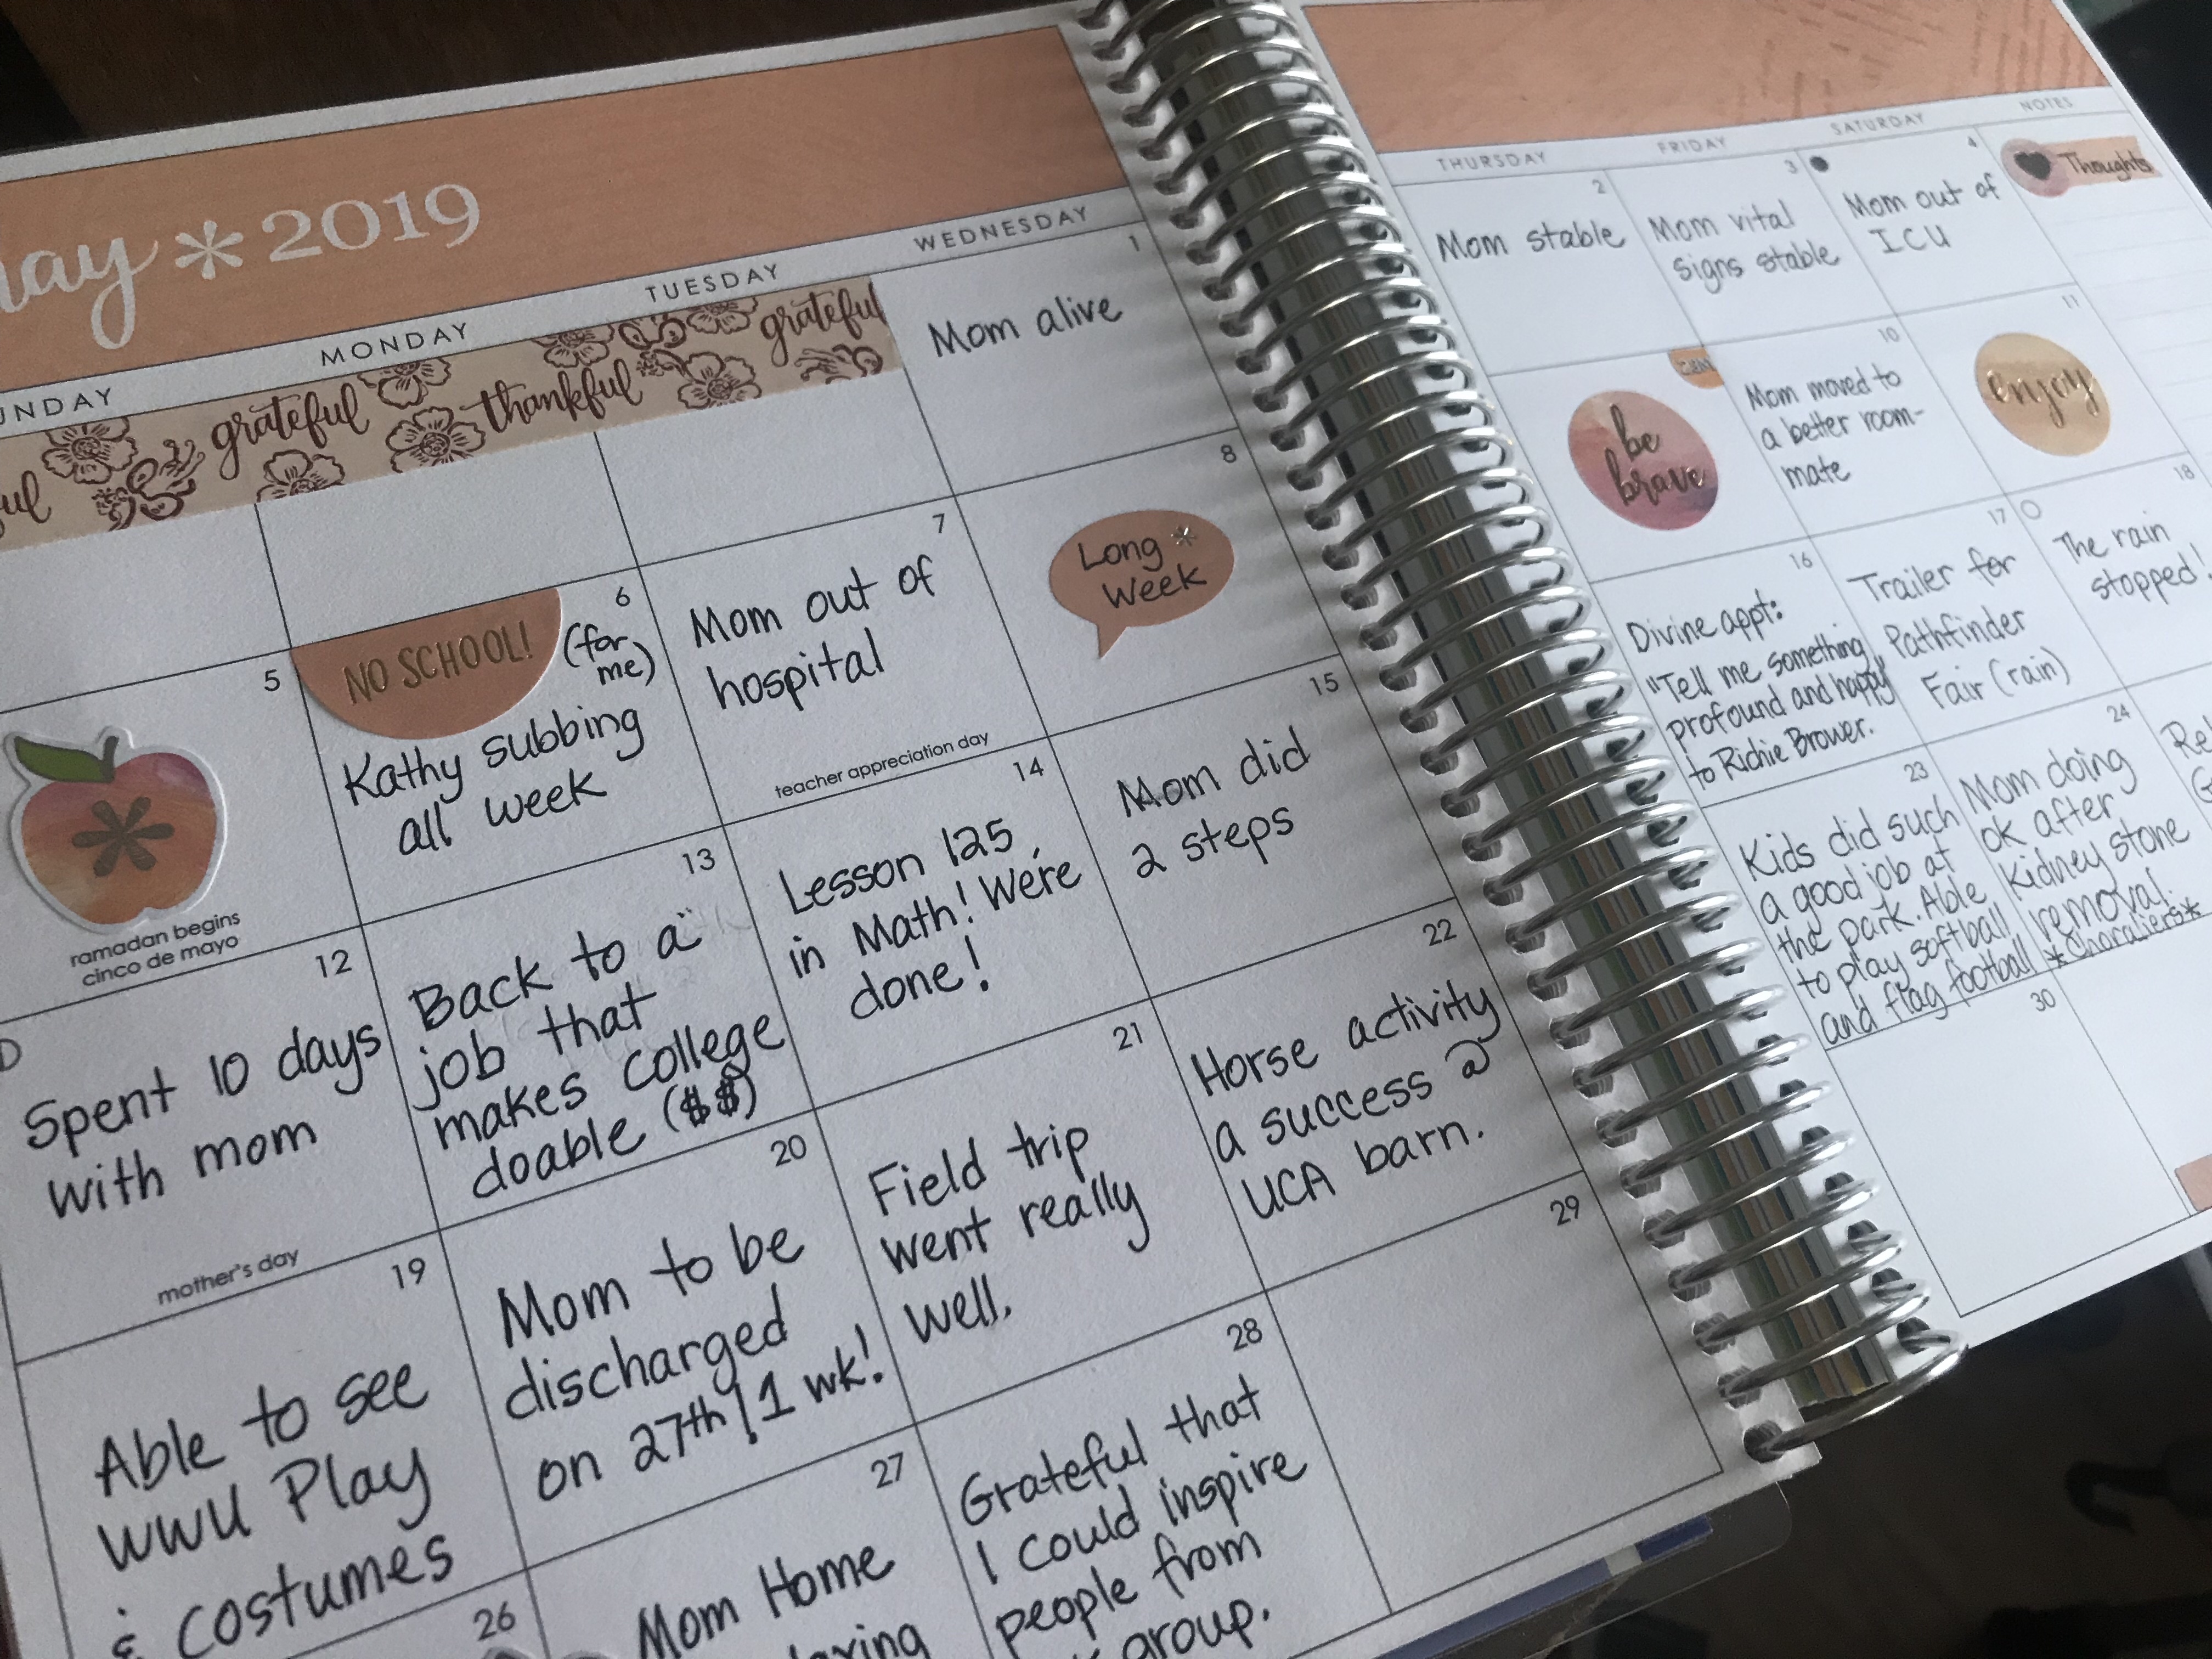 2019
MONDAY
TUESDAY
WEDNESDAY
THURSDAY
FRIDAY
SATURDAY
NOTES
grateful
thankful
grateful
1
Mom alive
2
Mom stable
3
Mom vital
signs stable
4
Mom out of
ICU
Thoughts
5
ramadan begins
cinco de mayo
6
NO SCHOOL!
(for
me)
Kathy subbing
all week
7
Mom out of
hospital
teacher appreciation day
8
Long
Week
be
brave
10
Mom moved to
a better room-
mate
11
enjoy
12
Spent 10 days
with mom
mother's day
13
Back to a
job that
makes college
doable ($$)
14
Lesson 125
in Math! We're
done!
15
Mom did
2 steps
16
Divine appt:
"Tell me something
profound and happy"
to Richie Brower.
17
Trailer for
Pathfinder
Fair (rain)
18
The rain
stopped!
19
Able to see
WWU Play
& costumes
20
Mom to be
discharged
on 27th! 1 wk!
21
Field trip
went really
well.
22
Horse activity
a success @
UCA barn.
23
Kids did such
a good job at
the park. Able
to play softball
and flag football
24
Mom doing
ok after
kidney stone
removal.
*Choraliers*
26
27
Mom Home
28
Grateful that
I could inspire
people from
group.
29
30